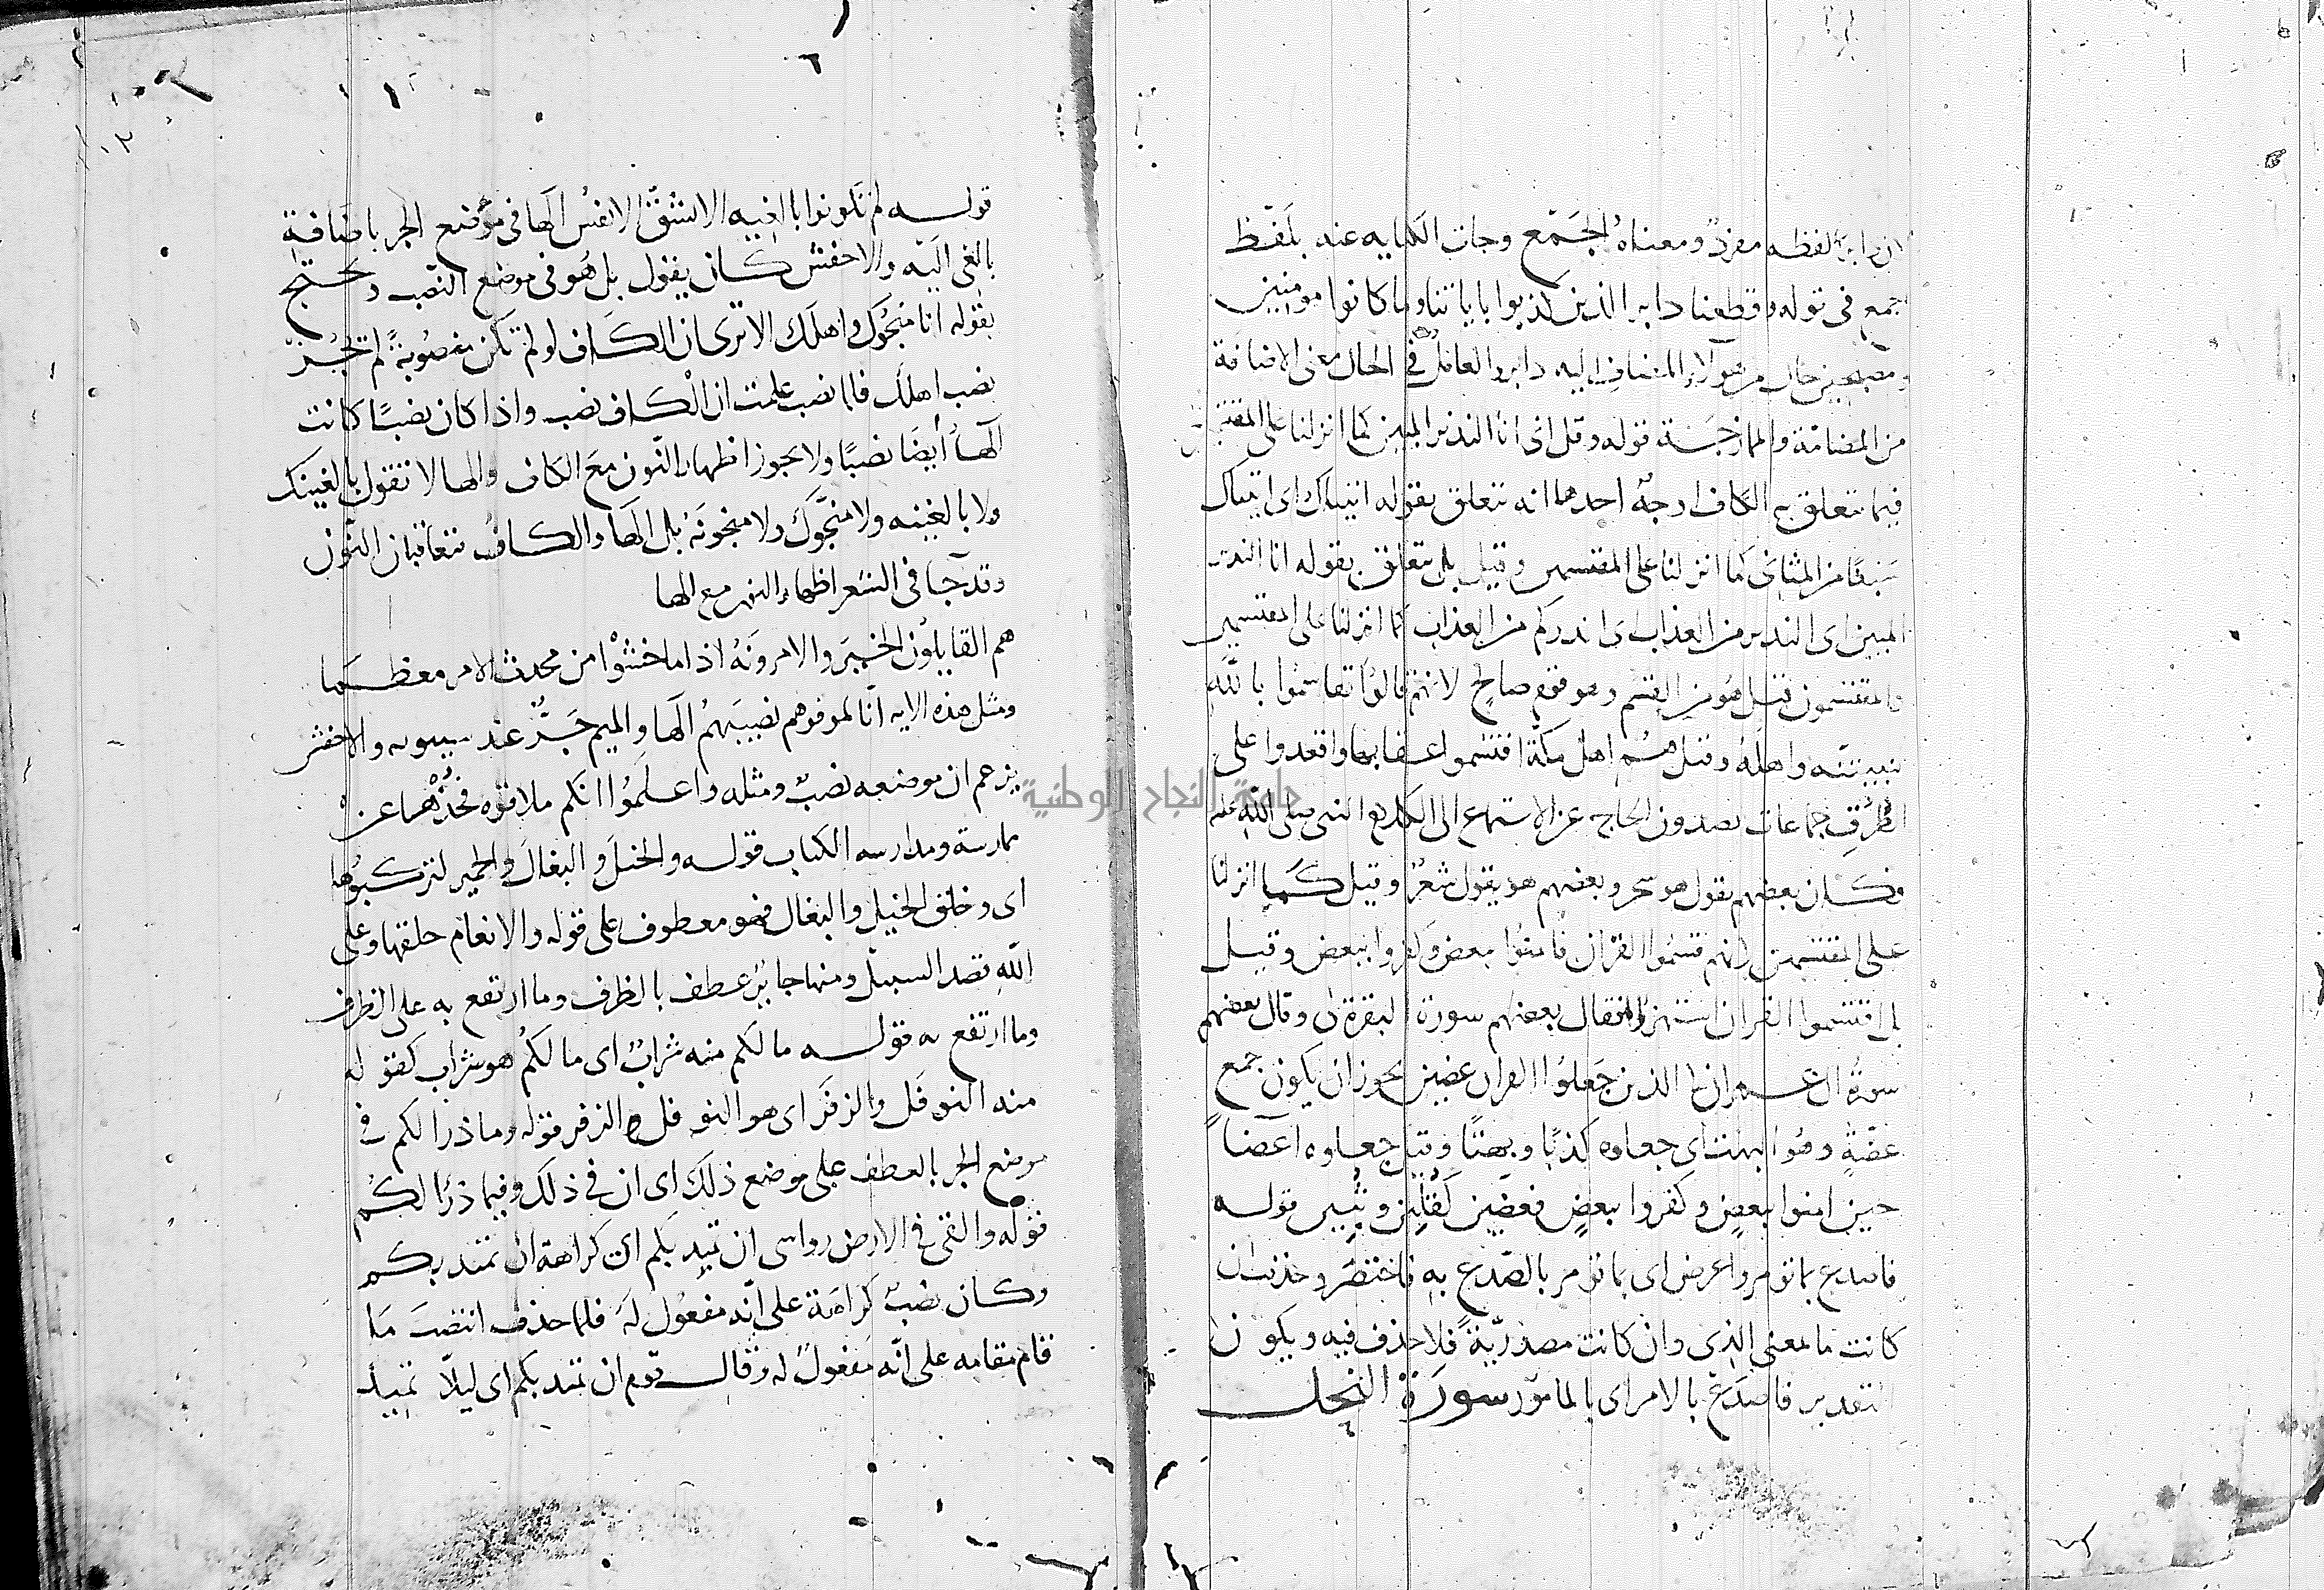 ان دابر لفظه مفرد ومعناه الجمع وجات الكنايه عنه بلفظ
الجمع فى قوله وقطعنا دابر الذين كذبوا باياتنا وما كانوا مومنين
ومصبحين حال من هولاء المضاف اليه دابر والعامل فى الحال معنى الاضافة
من المضامّة والممازجة قوله وقل انى انا النذير المبين كما انزلنا على المقتسمين
فيما تتعلق به الكاف اوجهٌ احدهما انه تتعلق بقوله اتيناك اى اتيناك
سبعًا من المثانى كما انزلنا على المقتسمين وقيل بل يتعلق بقوله انا النذير
المبين اى النذير من العذاب اى انذركم من العذاب كما انزلنا على المقتسمين
والمقتسمون قيل هو من القسم وهو قوم صالح لانهم قالوا تقاسموا بالله
لنبيتنه واهله وقيل هم اهل مكة اقتسموا اعقابها واقعدوا على
الطرق جماعات يصدون الحاج عن الاستماع الى الكلام النبى صلى الله عليه
فكان بعضهم يقول هو سحر وبعضهم هو يقول شعرٌ وقيل كما انزلنا
على المقتسمين لانهم قسموا القران فامنوا ببعض وكفروا ببعض وقيل
بل اقتسموا القران استهزاء فقال بعضهم سورة البقرة لى وقال بعضهم
سورة ال عمران لى الذين جعلوا القران عضين يجوز ان يكون جمع
عضةٍ وهو البهت اى جعلوه كذبًا وبهتًا وقيل جعلوه اعضاً
حين امنوا ببعضٍ وكفروا ببعضٍ فعضين كقلين وثبين قوله
فاصدع بما تومر واعرض اى بما تومر بالصدع به فاختصر وحذف ان
كانت ما بمعنى الذى وان كانت مصدريّةً فلا حذف فيه ويكون
التقدير فاصدع بالامر اى بالمامور سورة النحل
قوله لم تكونوا بالغيه الا بشق الانفس الها فى موضع الجر باضافة
بالغى اليه والاخفش كان يقول بل هو فى موضع النصب ويحتج
بقوله انا منجوك واهلك الا ترى ان الكاف لو لم تكن منصوبةً لم تجز
نصب اهلك فلما نصب علمت ان الكاف نصب واذا كان نصبًا كانت
الها أيضًا نصبًا ولا يجوز اظهار النون مع الكاف والها لا تقول بالغينك
ولا بالغينه ولا منجّوك ولا منجونه بل الها والكاف تتعاقبان النون
وقد جا فى الشعر اظهار النون مع الها
هم القايلون الخير والامرونه اذا ما خشوا من محدث الامر معظما
ومثل هذه الايه انّا لموفوهم نصيبهم الها والميم جرٌّ عند سيبويه والاخفش
يزعم ان موضعه نصبٌ ومثله واعلموا انكم ملاقوه فخذهما عن
ممارسة ومدارسه الكتاب قوله والخيل والبغال والحمير لتركبوها
اى وخلق الخيل والبغال فهو معطوف على قوله والانعام خلقها وعلى
الله قصد السبيل ومنها جايرٌ عطف بالظرف وما ارتفع به على الظرف
وما ارتفع به قوله ما لكم منه شرابٌ اى ما لكم هو شراب كقوله
منه النوفل والزفر اى هو النوفل الزفر قوله وما ذرا لكم فى
موضع الجر بالعطف على موضع ذلك اى ان فى ذلك وفيما ذرا لكم
قوله والقى فى الارض رواسى ان تميد بكم اى كراهة ان تميد بكم
وكان نصبُ كراهة على انه مفعول له فلما حذف انتصب ما
قام مقامه على انّه مفعولٌ له وقال قوم ان تميد بكم اى ليلّا تميد
جامعة النجاح الوطنية